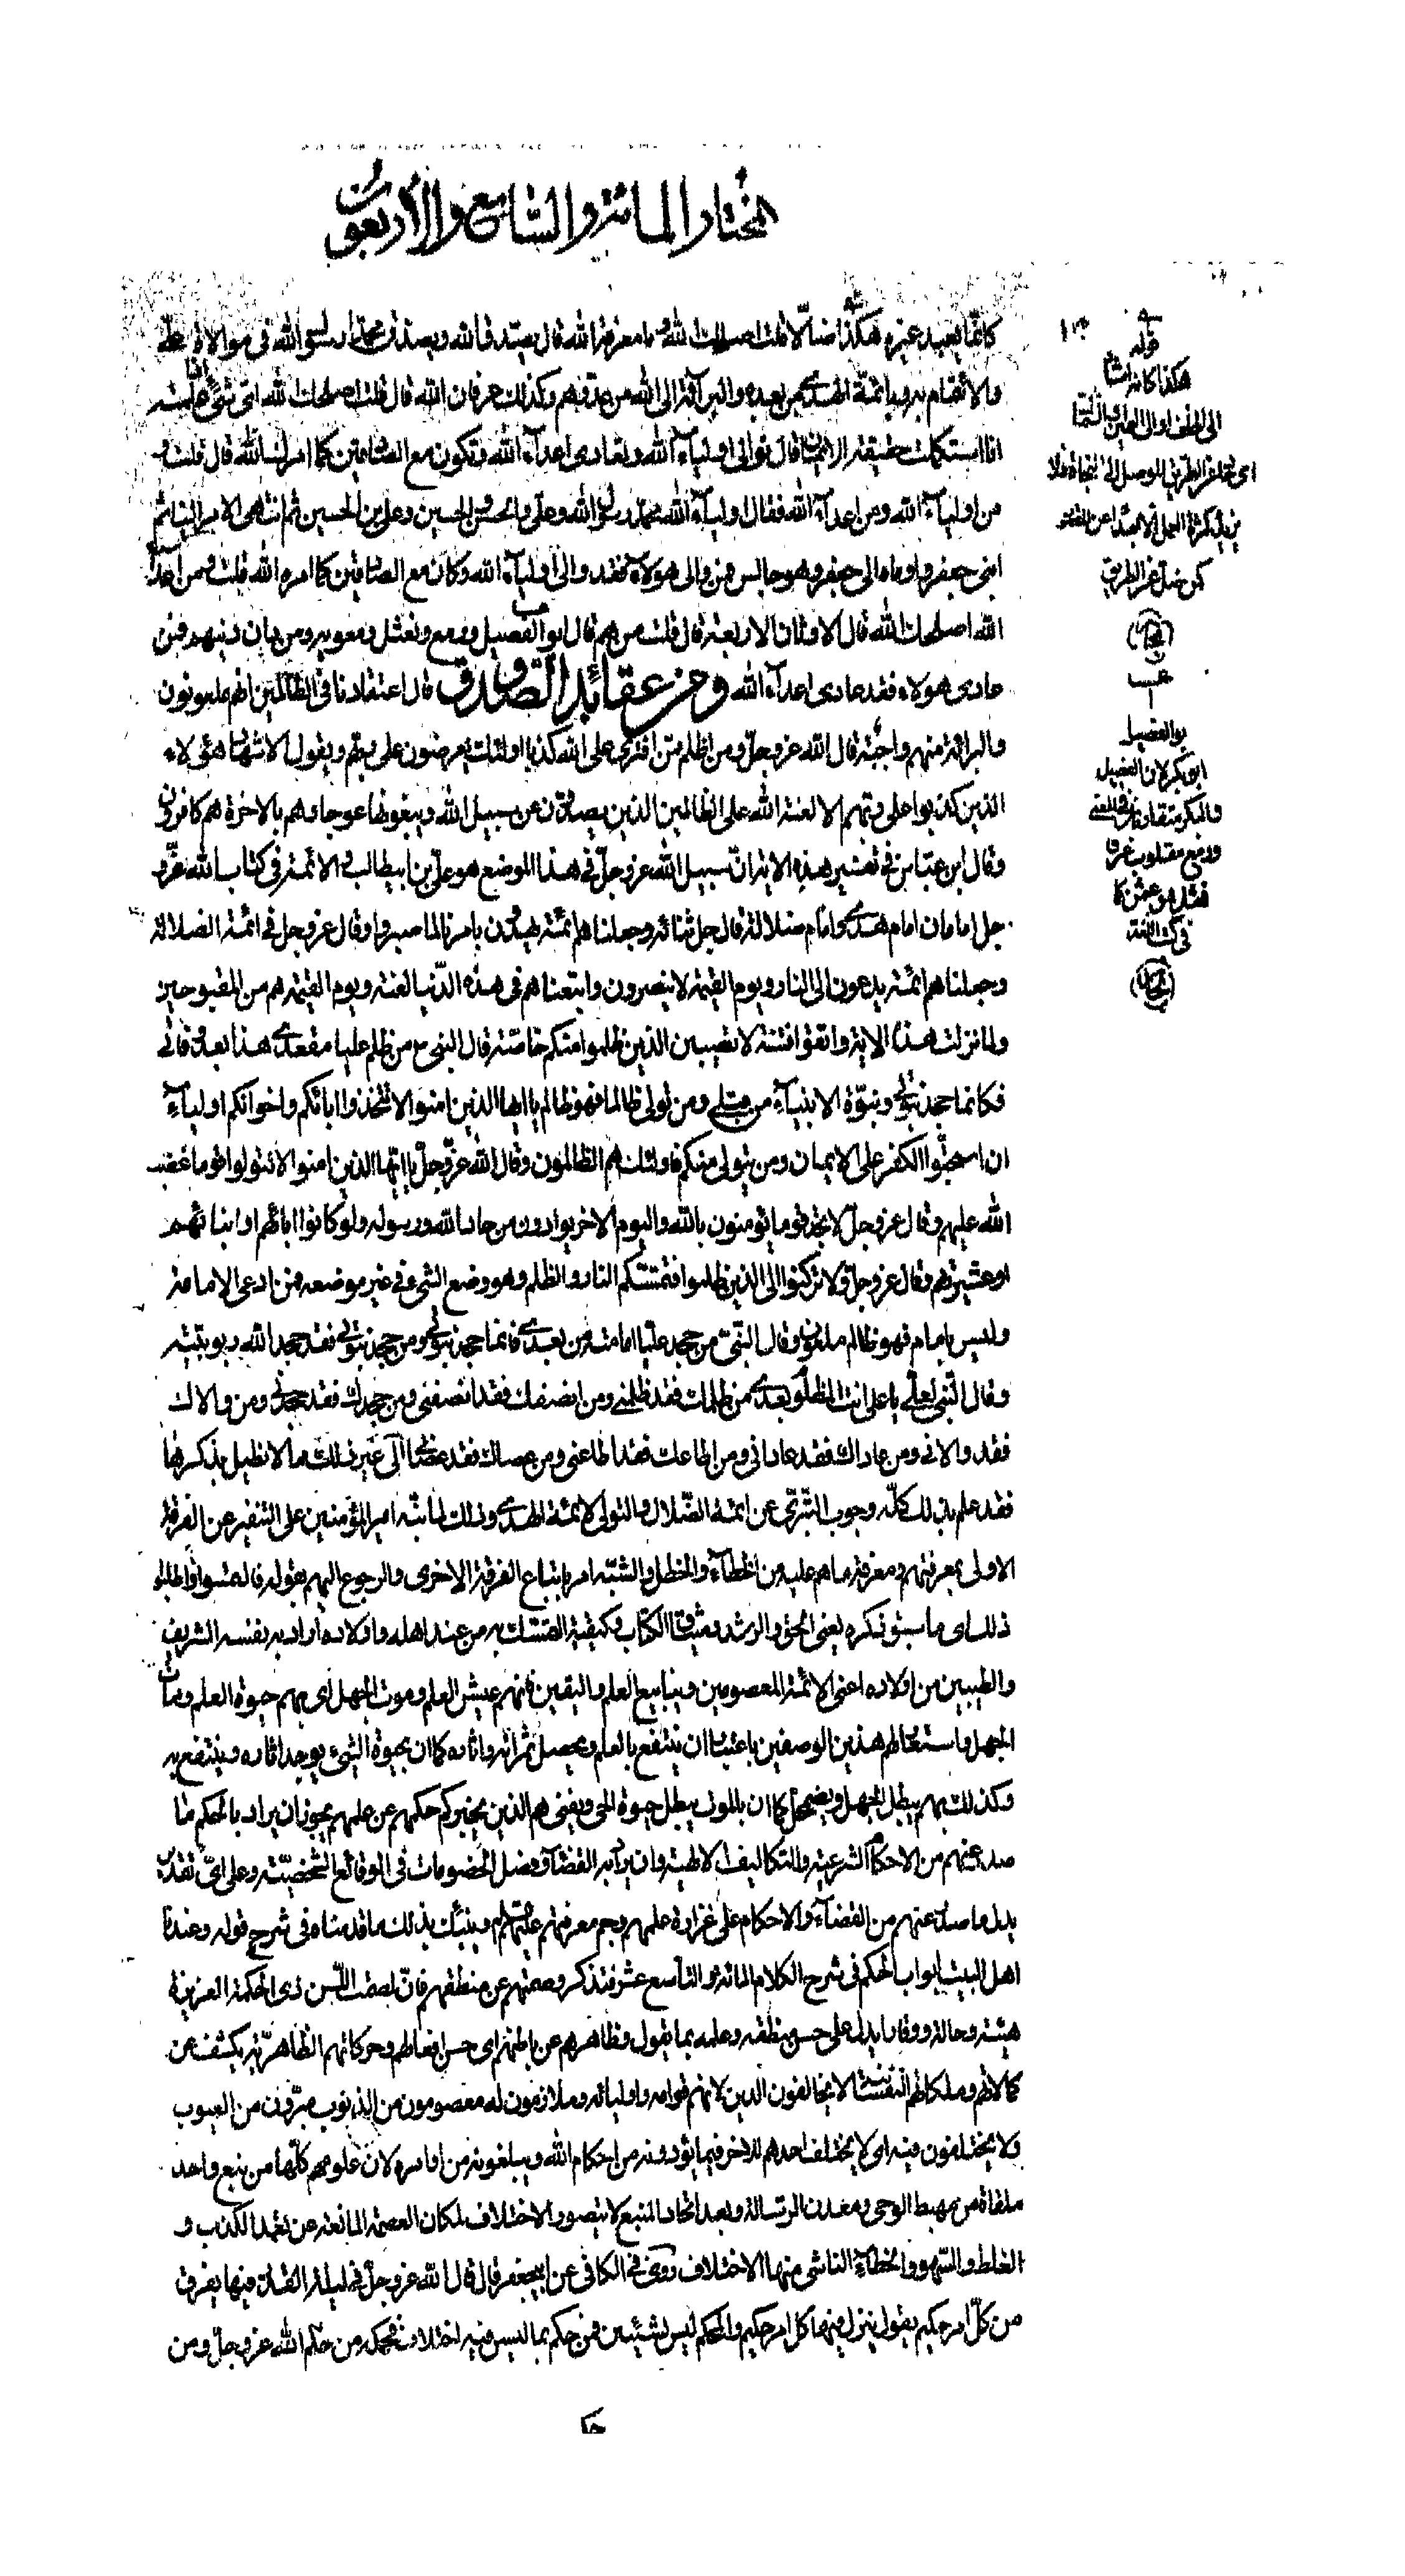 المختار المائة والسابع والأربعون
كانما يعبد غيره هكذا ضالا قلت اصلحك الله وما معرفة الله قال يصدق الله ويصدق محمدا رسول الله في موالاة علي
والايتمام به وبائمة الهدى من بعده والبرآءة الى الله من عدوهم وكذلك عرفان الله قال قلت اصلحك الله اي شيء اذا عملته
انا استكملت حقيقة الايمان قال توالى اولياء الله وتعادى اعدآء الله وتكون مع الصادقين كما امرك الله قال قلت و
من اولياء الله ومن اعدآء الله فقال اولياء الله محمد رسول الله وعلي والحسن والحسين وعلي بن الحسين ثم انتهى الامر الينا ثم
ابني جعفر واوما الى جعفر وهو جالس فمن والى هولآء فقد والى اولياء الله وكان مع الصادقين كما امره الله قلت ومن اعدآء
الله اصلحك الله قال الاوثان الاربعة قال قلت من هم قال ابو الفصيل ورمع ونعثل ومعوية ومن دان دينهم فمن
عادى هولاء فقد عادى اعدآء الله ومن عقائد الصدوق قال اعتقادنا في الظالمين انهم ملعونون
والبرائة منهم واجبة قال الله عز وجل ومن اظلم ممن افترى على الله كذبا اولئك يعرضون على ربهم ويقول الاشهاد هؤلاء
الذين كذبوا على ربهم الا لعنة الله على الظالمين الذين يصدون عن سبيل الله ويبغونها عوجا وهم بالاخرة هم كافرون
وقال ابن عباس في تفسير هذه الاية ان سبيل الله عز وجل في هذا الموضع هو علي بن ابيطالب والائمة في كتاب الله عز و
جل امامان امام هدى وامام ضلالة قال جل ثنائه وجعلناهم ائمة يهدون بامرنا لما صبروا وقال عز وجل في ائمة الضلالة
وجعلناهم ائمة يدعون الى النار ويوم القيمة لا ينصرون واتبعناهم في هذه الدنيا لعنة ويوم القيمة هم من المقبوحين
ولما نزلت هذه الاية واتقوا فتنة لا تصيبن الذين ظلموا منكم خاصة قال النبي ص من ظلم عليا مقعدى هذا بعد وفاتي
فكانما جحد نبوتي ونبوة الانبياء من قبلي ومن تولى ظالما فهو ظالم يا ايها الذين امنوا لا تتخذوا ابائكم واخوانكم اولياء
ان استحبوا الكفر على الايمان ومن يتولى منكم فاولئك هم الظالمون وقال الله عز وجل يا ايها الذين امنوا لا تتولوا قوما غضب
الله عليهم وقال عز وجل لا تجد قوما يؤمنون بالله واليوم الاخر يوادون من حاد الله ورسوله ولو كانوا ابائهم او ابنائهم
او عشيرتهم وقال عز وجل ولا تركنوا الى الذين ظلموا فتمسكم النار والظلم وهو وضع الشيء في غير موضعه فمن ادعى الامامة
وليس بامام فهو ظالم ملعون وقال النبي من جحد عليا امامته من بعدى فانما جحد نبوتي ومن جحد نبوتي فقد جحد الله ربوبيته
وقال النبي لعلي يا علي انت المظلوم بعدى من ظلمك فقد ظلمني ومن انصفك فقد انصفني ومن جحدك فقد جحدني ومن والاك
فقد والاني ومن عاداك فقد عاداني ومن اطاعك فقد اطاعني ومن عصاك فقد عصاني الى غير ذلك مما لا نطيل بذكرها
فقد علم بذلك كله وجوب التبري عن ائمة الضلال والتولي لائمة الهدى وذلك لما نبه امير المؤمنين على التنفير عن الفرقة
الاولى بمعرفتهم ومعرفة ما هم عليه من الخطاء والخطل والشبه امر باتباع الفرقة الاخرى والرجوع اليهم بقوله فالتمسوا واطلبوا
ذلك اى ما سبق ذكره يعني الحق والرشد وميثاق الكتاب وكيفية التمسك به من عند اهله واولاده اراد به نفسه الشريف
والطيبين من اولاده اعني الائمة المعصومين وينابيع العلم واليقين فانهم عيش العلم وموت الجهل اى بهم حيوة العلم وممات
الجهل واستعار لهم هذين الوصفين باعتبار ان ينتفع بالعلم ويحصل ثمراته واثاره كما ان بحيوة الشيء يوجد اثاره وينتفع به
وكذلك بهم يبطل الجهل ويضمحل كما ان بالموت يبطل حيوة الحي ويفنى هم الذين يخبركم حكمهم عن علمهم يجوز ان يراد بالحكم ما
صدر عنهم من الاحكام الشرعية والتكاليف الالهية وان يراد به القضاء وفصل الخصومات في الوقائع الشخصية وعلى اى تقدير
يدل ما صدر عنهم من القضاء والاحكام على غزارة علمهم وجم معرفتهم عليهم السلم وينبئك بذلك ما قدمناه في شرح قوله وعندنا
اهل البيت ابواب الحكم في شرح الكلام المائة والتاسع عشر فتذكر وصمتهم عن منطقهم فان لصمت اللسن ذى الحكمة العزيزة
هيئة وحالة ووقارا يدل على حسن منطقه وعلمه بما يقول وظاهرهم عن باطنهم اى حسن افعالهم وحركاتهم الظاهرية يكشف عن
كمالاتهم وملكاتهم النفسانية لا يخالفون الدين لانهم قوامه واوليائه وملازمون له معصومون من الذنوب مبرؤن من العيوب
ولا يختلفون فيه اى لا يختلف احدهم للاخر فيما يؤدونه من احكام الله ويبلغونه من اوامره لان علومهم كلها من منبع واحد
متلقاة من مهبط الوحي ومعدن الرسالة وبعد اتحاد المنبع لا يتصور الاختلاف لمكان العصمة المانعة عن تعمد الكذب و
الغلط والسهو والخطاء الناشي منها الاختلاف روى في الكافي عن ابيجعفر قال قال الله عز وجل في ليلة القدر فيها يفرق
من كل امر حكيم يقول ينزل فيها كل امر حكيم والمحكم ليس بشيئين فمن حكم بما ليس فيه اختلاف فحكمه من حكم الله عز وجل ومن
حكم
قوله
هكذا كانه اشار
اى تخلف الطريق الموصل الى النجاة فلا
يزيد كثرة العمل الا بعدا عن المقصود
كمن ضل عن الطريق
بو الفصيل
ابو بكر لان الفصيل
والبكر متقاربان في المعنى
ورمع مقلوب عمر و
نعثل هو عثمن كما
في كتب اللغة